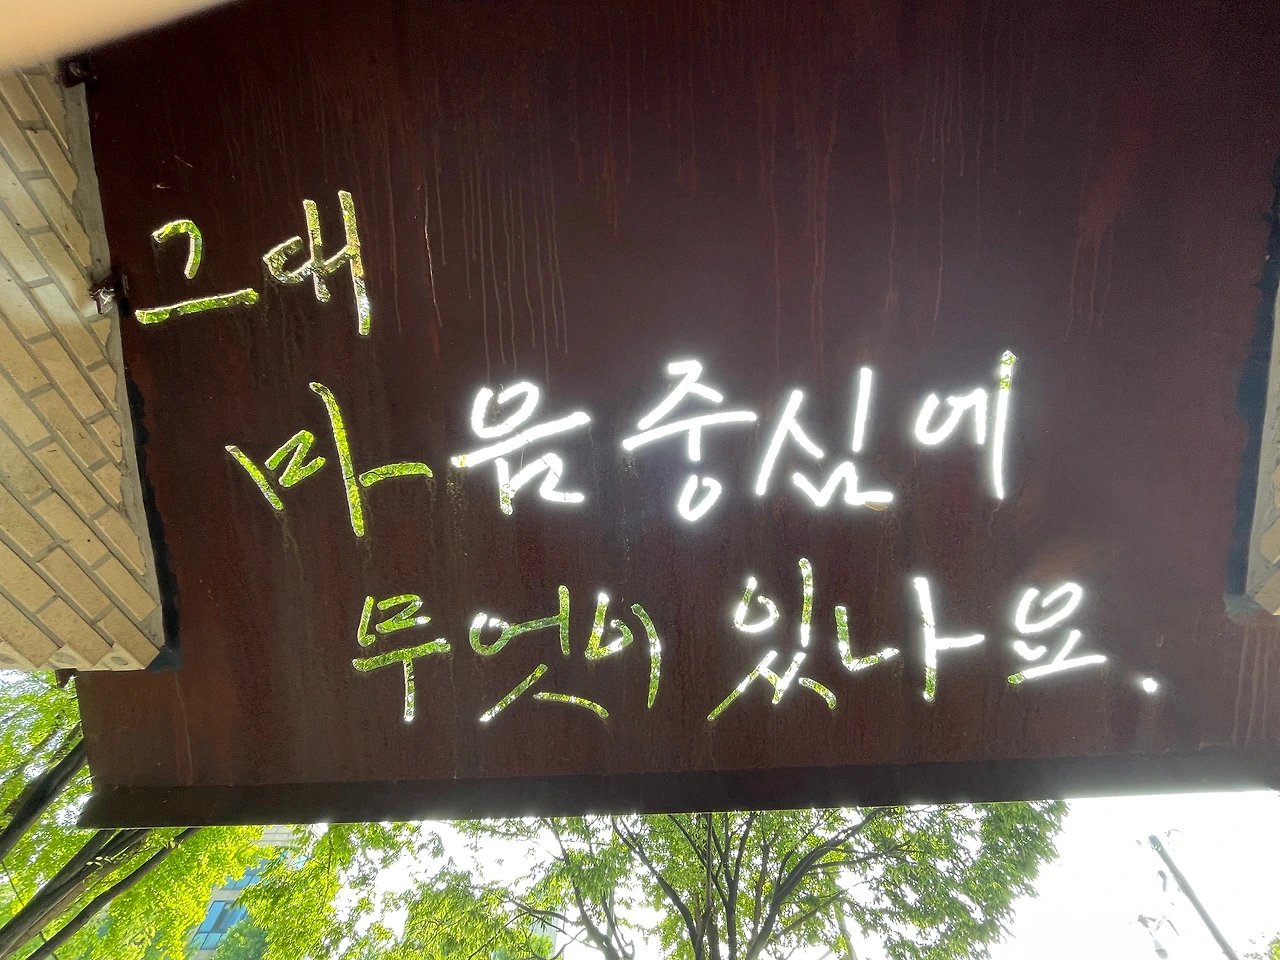 그대
마음중심에
무엇이 있나요.